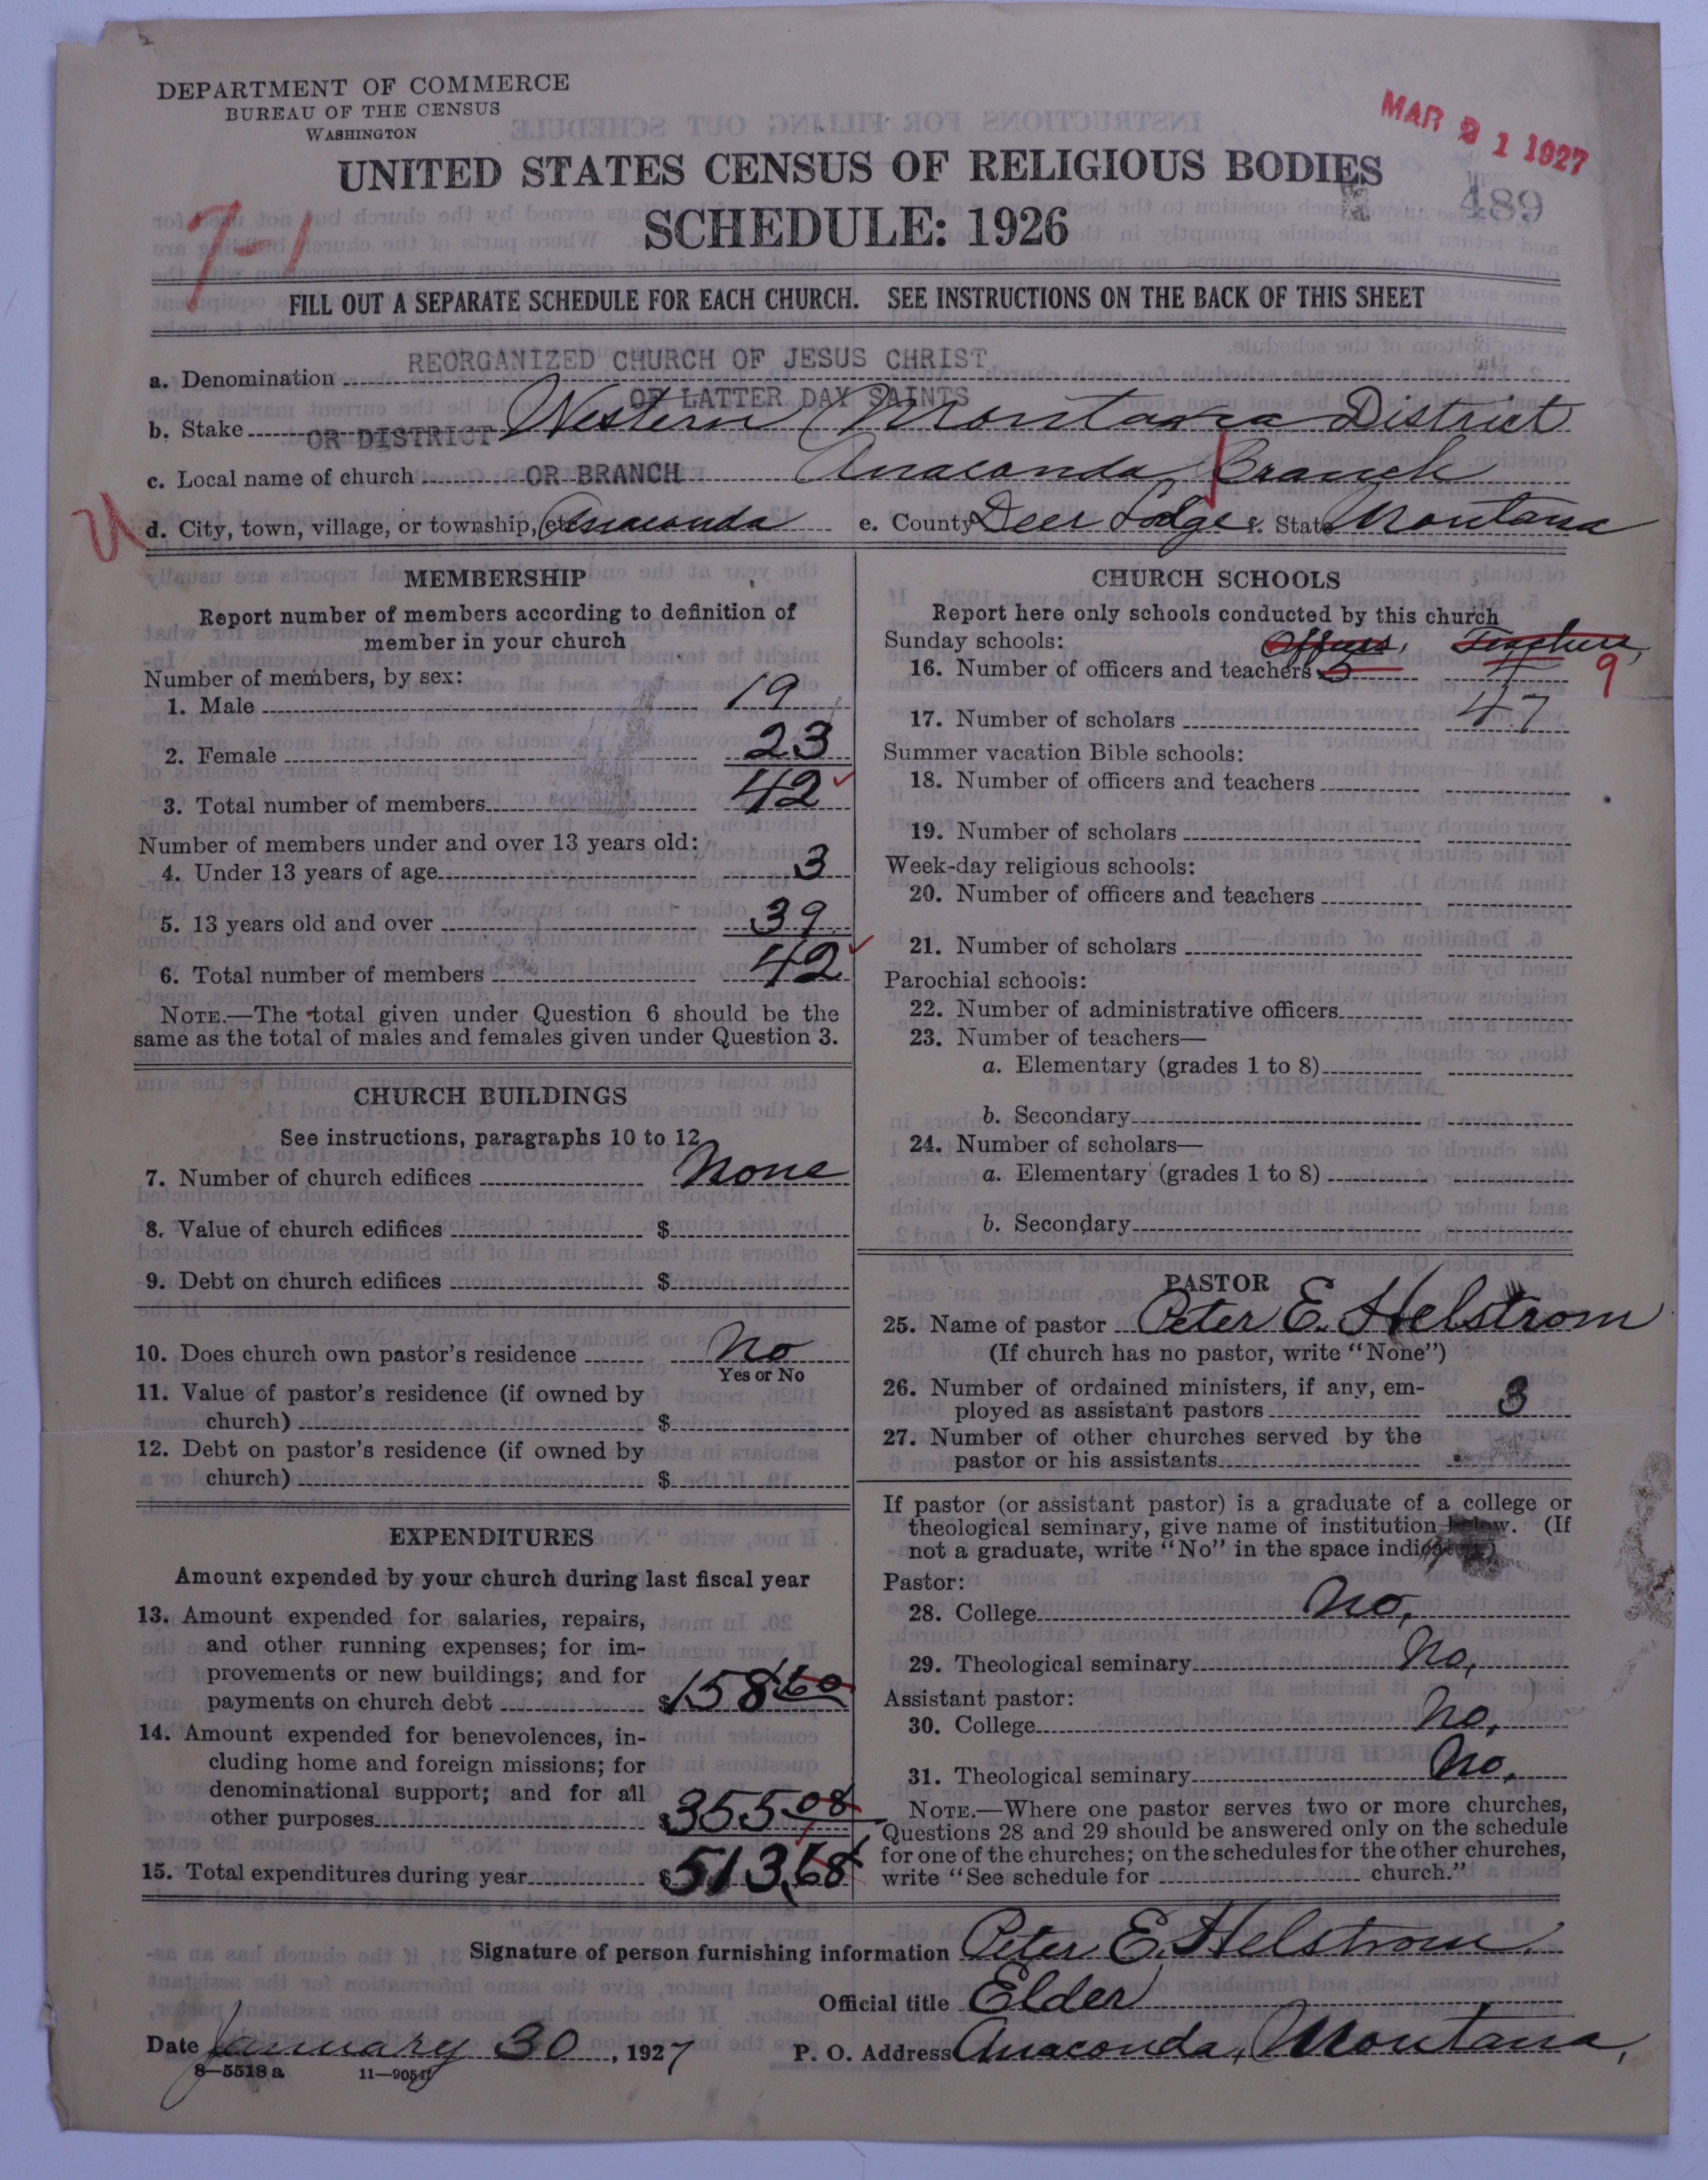 DEPARTMENT OF COMMERCE
BUREAU OF THE CENSUS
WASHINGTON
MAR 21 1927
UNITED STATES CENSUS OF RELIGIOUS BODIES
489
SCHEDULE: 1926
7-1
FILL OUT A SEPARATE SCHEDULE FOR EACH CHURCH. SEE INSTRUCTIONS ON THE BACK OF THIS SHEET
a. Denomination REORGANIZED CHURCH OF JESUS CHRIST
OF LATTER DAY SAINTS
b. Stake OR DISTRICT Western Montana District
c. Local name of church OR BRANCH Anaconda Branch
d. City, town, village, or township, etc. Anaconda e. County Deer Lodge f. State Montana
MEMBERSHIP
Report number of members according to definition of
member in your church
Number of members, by sex:
1. Male 19
2. Female 23
3. Total number of members 42
Number of members under and over 13 years old:
4. Under 13 years of age 3
5. 13 years old and over 39
6. Total number of members 42
NOTE.—The total given under Question 6 should be the
same as the total of males and females given under Question 3.
CHURCH BUILDINGS
See instructions, paragraphs 10 to 12
7. Number of church edifices None
8. Value of church edifices $
9. Debt on church edifices $
10. Does church own pastor's residence No
Yes or No
11. Value of pastor's residence (if owned by
church) $
12. Debt on pastor's residence (if owned by
church) $
EXPENDITURES
Amount expended by your church during last fiscal year
13. Amount expended for salaries, repairs,
and other running expenses; for im-
provements or new buildings; and for
payments on church debt $158 60
14. Amount expended for benevolences, in-
cluding home and foreign missions; for
denominational support; and for all
other purposes $355 08
15. Total expenditures during year $513.68
CHURCH SCHOOLS
Report here only schools conducted by this church
Sunday schools: Officers, Teachers,
16. Number of officers and teachers 5 4 9
17. Number of scholars 47
Summer vacation Bible schools:
18. Number of officers and teachers
19. Number of scholars
Week-day religious schools:
20. Number of officers and teachers
21. Number of scholars
Parochial schools:
22. Number of administrative officers
23. Number of teachers—
a. Elementary (grades 1 to 8)
b. Secondary
24. Number of scholars—
a. Elementary (grades 1 to 8)
b. Secondary
PASTOR
25. Name of pastor Peter E. Helstrom
(If church has no pastor, write "None")
26. Number of ordained ministers, if any, em-
ployed as assistant pastors 3
27. Number of other churches served by the
pastor or his assistants
If pastor (or assistant pastor) is a graduate of a college or
theological seminary, give name of institution below. (If
not a graduate, write "No" in the space indicated)
Pastor:
28. College No,
29. Theological seminary No,
Assistant pastor:
30. College No,
31. Theological seminary No,
NOTE.—Where one pastor serves two or more churches,
Questions 28 and 29 should be answered only on the schedule
for one of the churches; on the schedules for the other churches,
write "See schedule for church."
Signature of person furnishing information Peter E. Helstrom.
Official title Elder
Date January 30, 1927 P. O. Address Anaconda, Montana,
8—5518 a 11—9051